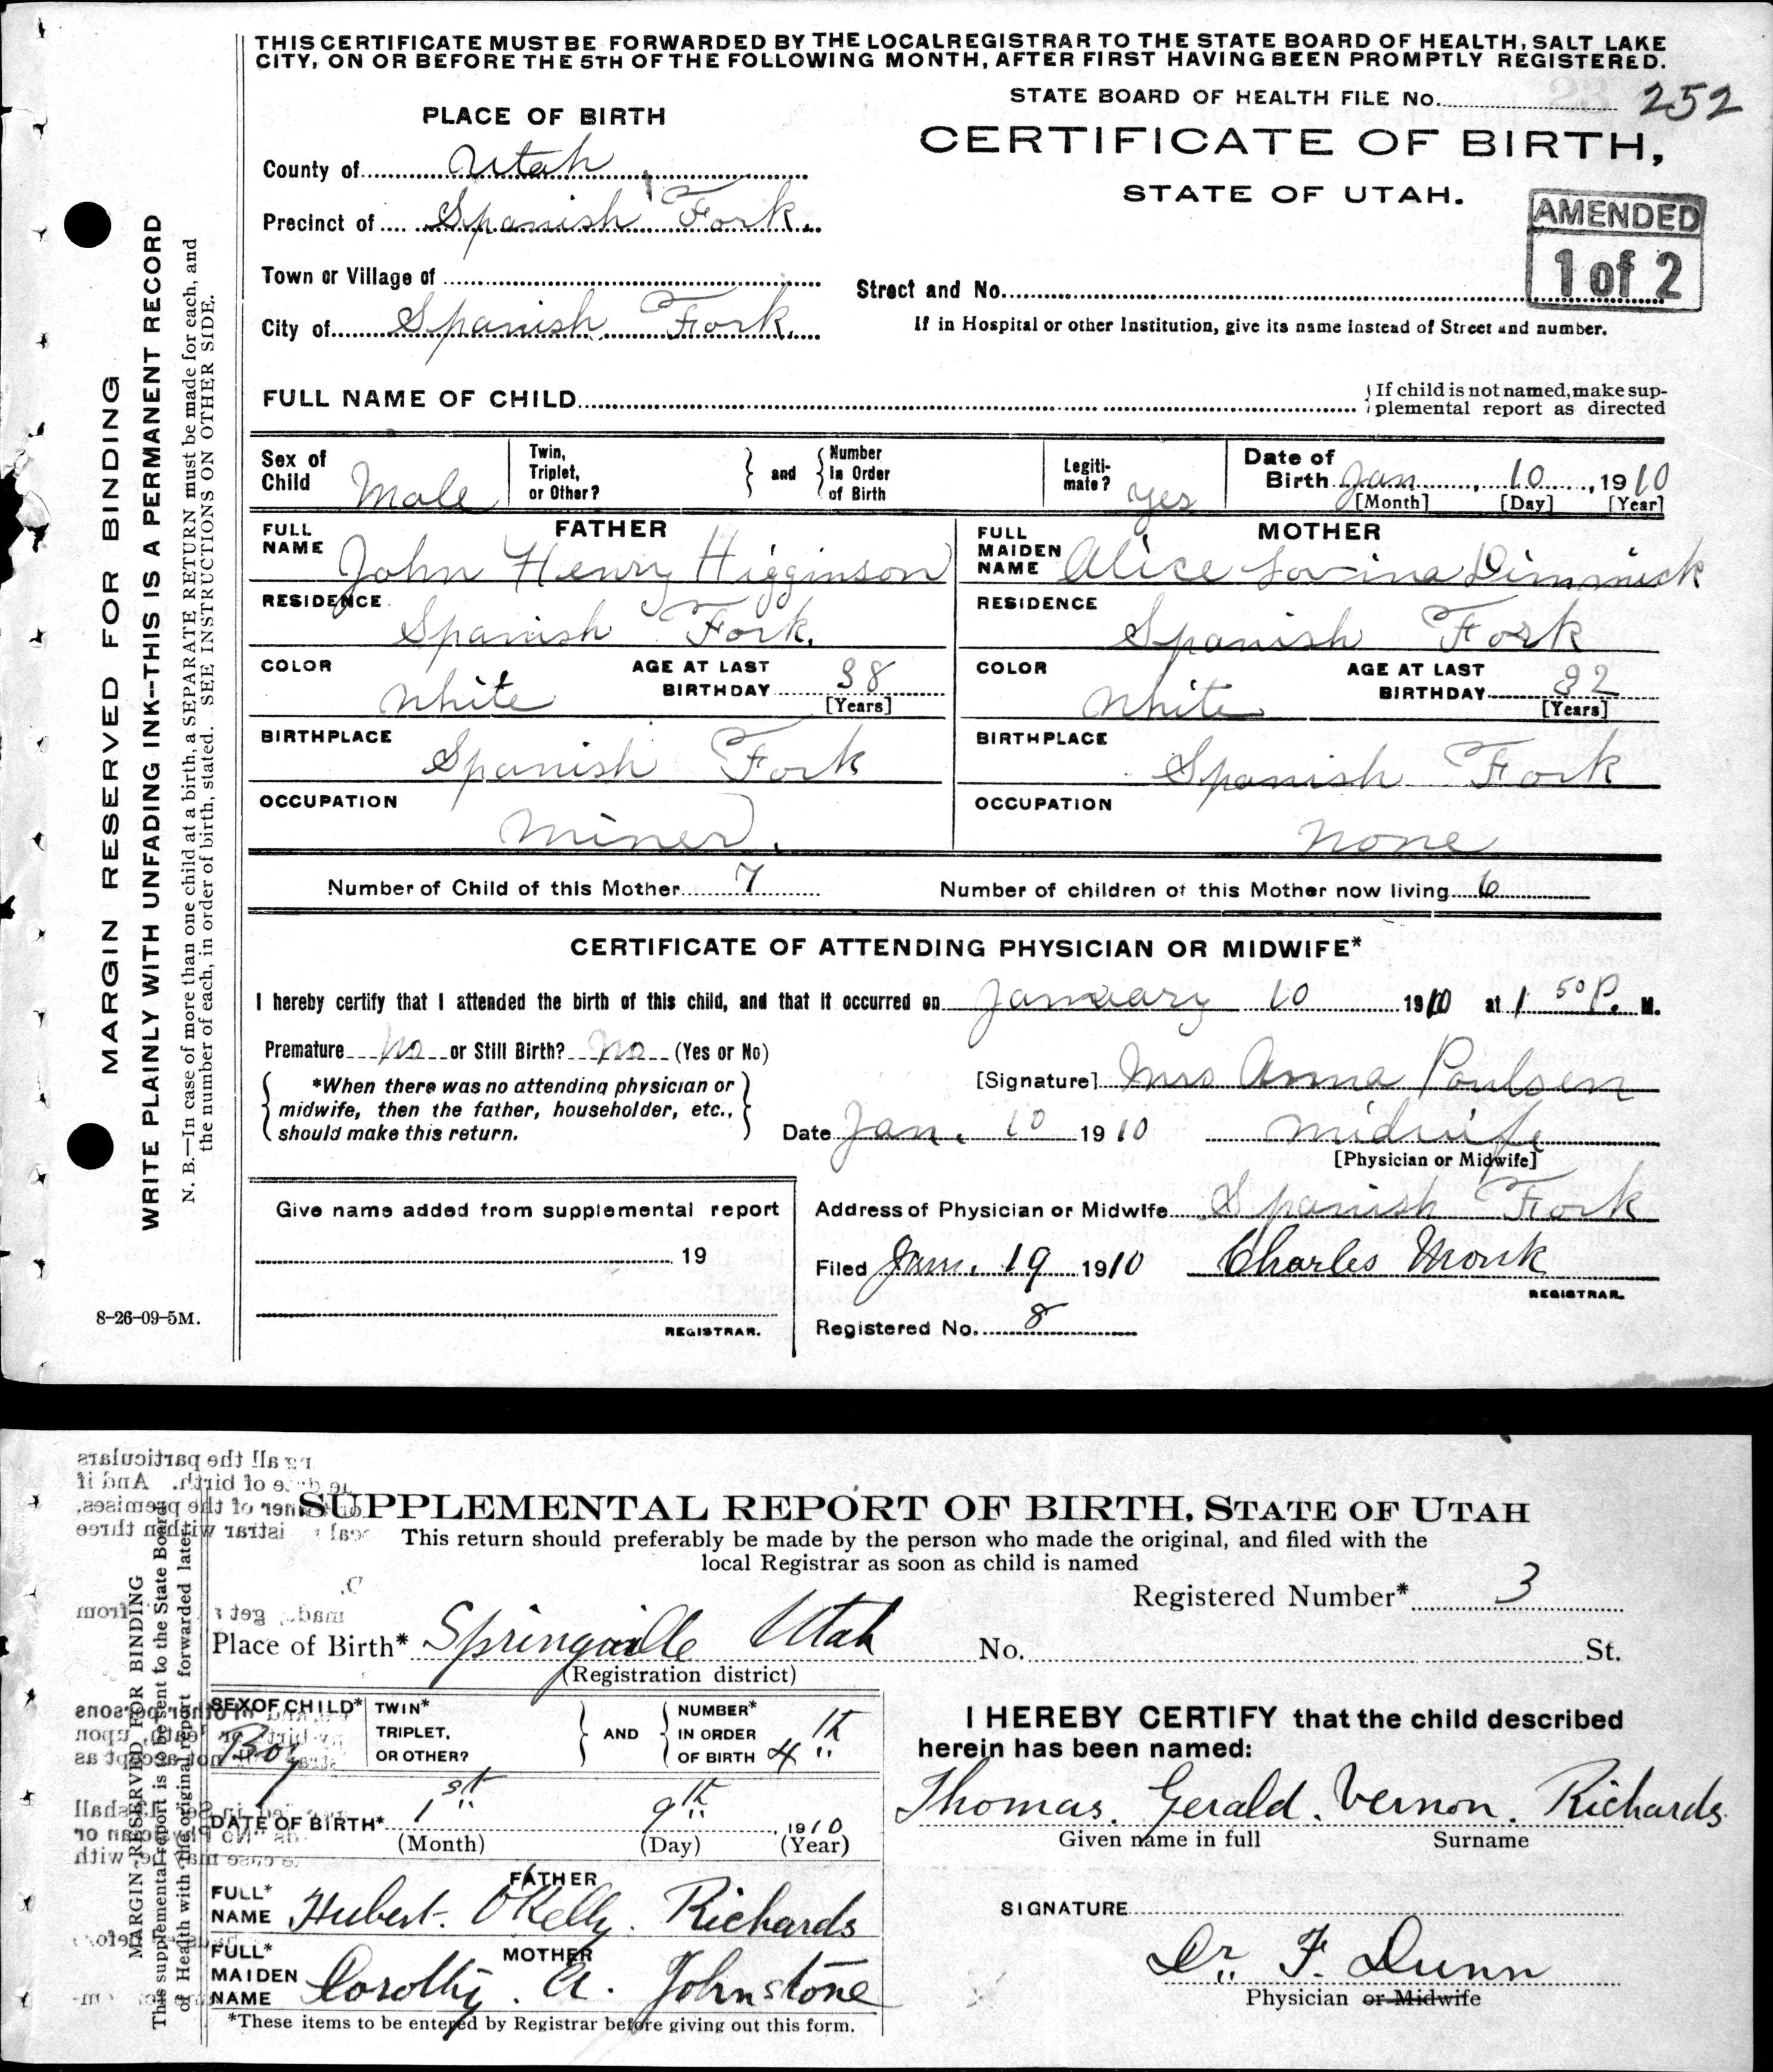 THIS CERTIFICATE MUST BE FORWARDED BY THE LOCAL REGISTRAR TO THE STATE BOARD OF HEALTH, SALT LAKE
CITY, ON OR BEFORE THE 5TH OF THE FOLLOWING MONTH, AFTER FIRST HAVING BEEN PROMPTLY REGISTERED.
STATE BOARD OF HEALTH FILE No. 252
PLACE OF BIRTH
CERTIFICATE OF BIRTH,
STATE OF UTAH.
AMENDED
1 of 2
County of Utah
Precinct of Spanish Fork
Town or Village of
Street and No.
City of Spanish Fork.
If in Hospital or other Institution, give its name instead of Street and number.
FULL NAME OF CHILD
If child is not named, make sup-
plemental report as directed
Sex of Child Male
Twin, Triplet, or Other? and Number in Order of Birth
Legiti-mate? yes
Date of Birth Jan 10, 1910
[Month] [Day] [Year]
FATHER
FULL NAME John Henry Higginson
RESIDENCE Spanish Fork.
COLOR White
AGE AT LAST BIRTHDAY 38
[Years]
BIRTHPLACE Spanish Fork
OCCUPATION Miner.
MOTHER
FULL MAIDEN NAME Alice Lovina Dimmick
RESIDENCE Spanish Fork
COLOR White
AGE AT LAST BIRTHDAY 32
[Years]
BIRTHPLACE Spanish Fork
OCCUPATION none
Number of Child of this Mother 7
Number of children of this Mother now living 6
CERTIFICATE OF ATTENDING PHYSICIAN OR MIDWIFE*
I hereby certify that I attended the birth of this child, and that it occurred on January 10 1910 at 1 50 P. M.
Premature No or Still Birth? No (Yes or No)
*When there was no attending physician or
midwife, then the father, householder, etc.,
should make this return.
[Signature] Mrs Anna Poulsen
Date Jan. 10 1910 midwife
[Physician or Midwife]
Give name added from supplemental report
19
REGISTRAR.
Address of Physician or Midwife Spanish Fork
Filed Jan. 19 1910 Charles Monk
REGISTRAR.
Registered No. 8
8-26-09-5M.
MARGIN RESERVED FOR BINDING
WRITE PLAINLY WITH UNFADING INK--THIS IS A PERMANENT RECORD
N. B.—In case of more than one child at a birth, a SEPARATE RETURN must be made for each, and
the number of each, in order of birth, stated. SEE INSTRUCTIONS ON OTHER SIDE.
SUPPLEMENTAL REPORT OF BIRTH, STATE OF UTAH
This return should preferably be made by the person who made the original, and filed with the
local Registrar as soon as child is named
Registered Number* 3
Place of Birth* Springville Utah No. St.
(Registration district)
SEX OF CHILD* Boy
TWIN* TRIPLET, OR OTHER? AND NUMBER* IN ORDER OF BIRTH 4th
DATE OF BIRTH* 1st 9th, 1910
(Month) (Day) (Year)
FATHER
FULL* NAME Hubert. OKelly. Richards
MOTHER
FULL* MAIDEN NAME Dorothy. A. Johnstone
*These items to be entered by Registrar before giving out this form.
I HEREBY CERTIFY that the child described
herein has been named:
Thomas. Gerald. Vernon. Richards.
Given name in full Surname
SIGNATURE
Dr. F. Dunn
Physician or Midwife
MARGIN RESERVED FOR BINDING
This supplemental report is to be sent to the State Board
of Health with the original report forwarded later